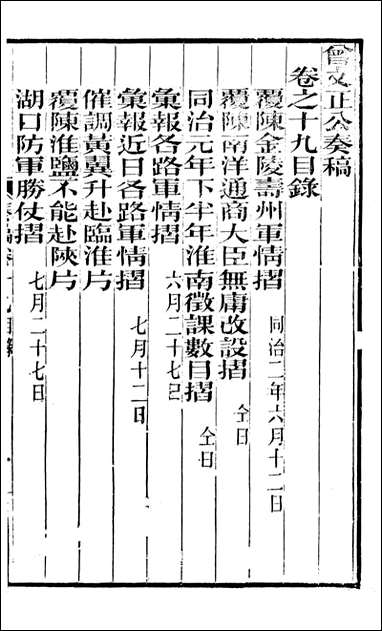 曾文正公奏稿
卷之十九目錄
覆陳金陵壽州軍情摺 同治二年六月十二日
覆陳南洋通商大臣無庸改設摺 仝日
同治元年下半年淮南徵課數目摺 仝日
彙報各路軍情摺 六月二十七日
彙報近日各路軍情摺 七月十二日
催調黃翼升赴臨淮片
覆陳淮鹽不能赴陝片
湖口防軍勝仗摺 七月二十七日